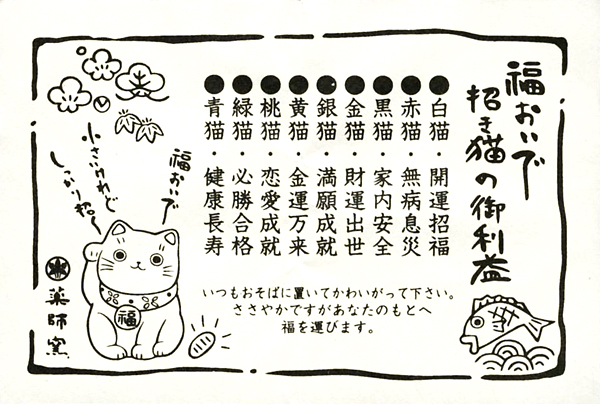 福おいで
招き猫の御利益
●白猫・開運招福
●赤猫・無病息災
●黒猫・家内安全
●金猫・財運出世
●銀猫・満願成就
●黄猫・金運万来
●桃猫・恋愛成就
●緑猫・必勝合格
●青猫・健康長寿
いつもおそばに置いてかわいがって下さい。
ささやかですがあなたのもとへ
福を運びます。
福おいで
小さいけれど
しっかり招く
福
薬師窯